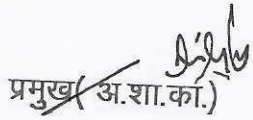 प्रमुख( अ.शा.का.)